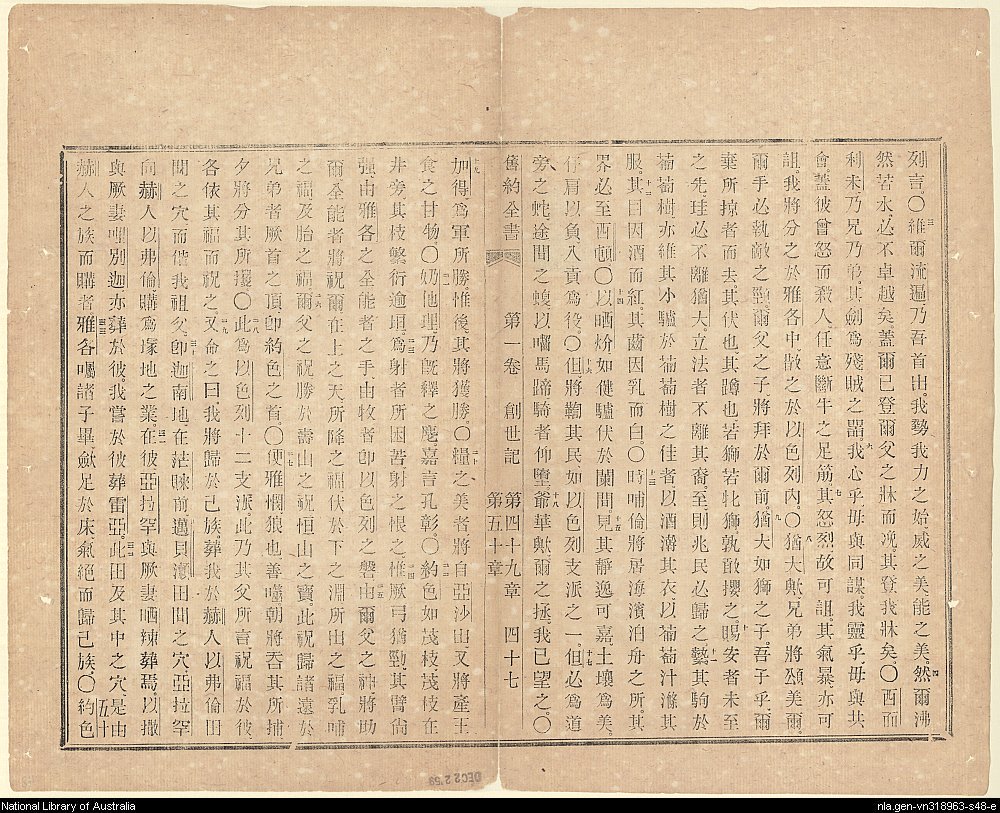 列言。〇維爾流遍乃吾首出。我勢我力之始威之美能之美。然爾沸
然若水必不卓越矣蓋爾已登爾父之牀而凂其登我牀矣。〇西面
利未乃兄乃弟其劍爲殘賊之噐我心乎毋與同謀我靈乎毋與共
會蓋彼曾怒而殺人任意斷牛之足筋其怒烈故可詛其氣暴亦可
詛。我將分之於雅各中散之於以色列內。〇猶大與兄弟將頌美爾。
爾手必執敵之勁爾父之子將拜於爾前。猶大如獅之子吾子乎爾
棄所掠者而去其伏也其蹲也若獅若牝獅孰敢攖之。賜安者未至
之先珪必不離猶大立法者不離其裔至則兆民必歸之。蓺其駒於
葡萄樹亦維其小驢於葡萄樹之佳者以酒澣其衣以葡萄汁滌其
服。其目因酒而紅其齒因乳而白。〇時哺倫將居海濱泊舟之所其
界必至西頓。〇以哂炌如健驢伏於闌間見其靜逸可嘉土壤爲美
仔肩以負入貢爲役。〇但將鞫其民如以色列支派之一但必爲道
旁之蛇途間之蝮以囓馬蹄騎者仰墮。爺華歟爾之拯我已望之。〇
舊約全書 第一卷 創世記 第四十九章 第五十章 四十七
加得爲軍所勝惟後其將獲勝。〇糧之美者將自亞沙出又將產王
食之甘物。〇奶他理乃旣釋之麀嘉言孔彰。〇約色如茂枝茂枝在
井旁其枝繁衍逾垣爲射者所困苦射之恨之。惟厥弓猶勁其臂尙
强由雅各之全能者之手由牧者卽以色列之磐由爾父之神將助
爾全能者將祝爾在上之天所降之福伏於下之淵所出之福乳哺
之福及胎之福爾父之祝勝於壽山之祝恒山之寶此祝歸諸遠於
兄弟者厥首之頂卽約色之首。〇便雅憫狼也善囓朝將吞其所捕
夕將分其所攫。〇此爲以色列十二支派此乃其父所言祝福於彼
各依其福而祝之又命之曰我將歸於己族葬我於赫人以弗倫田
間之穴而偕我祖父卽迦南地在茫睞前邁貝濾田間之穴亞拉罕
向赫人以弗倫購爲塚地之業。在彼亞拉罕與厥妻哂辣葬焉。以撒
與厥妻哩別迦亦葬於彼我嘗於彼葬雷亞此田及其中之穴是由
赫人之族而購者雅各囑諸子畢斂足於床氣絕而歸己族。〇約色
五十
DEC 2 2 59
National Library of Australia
nla.gen-vn318963-s48-e